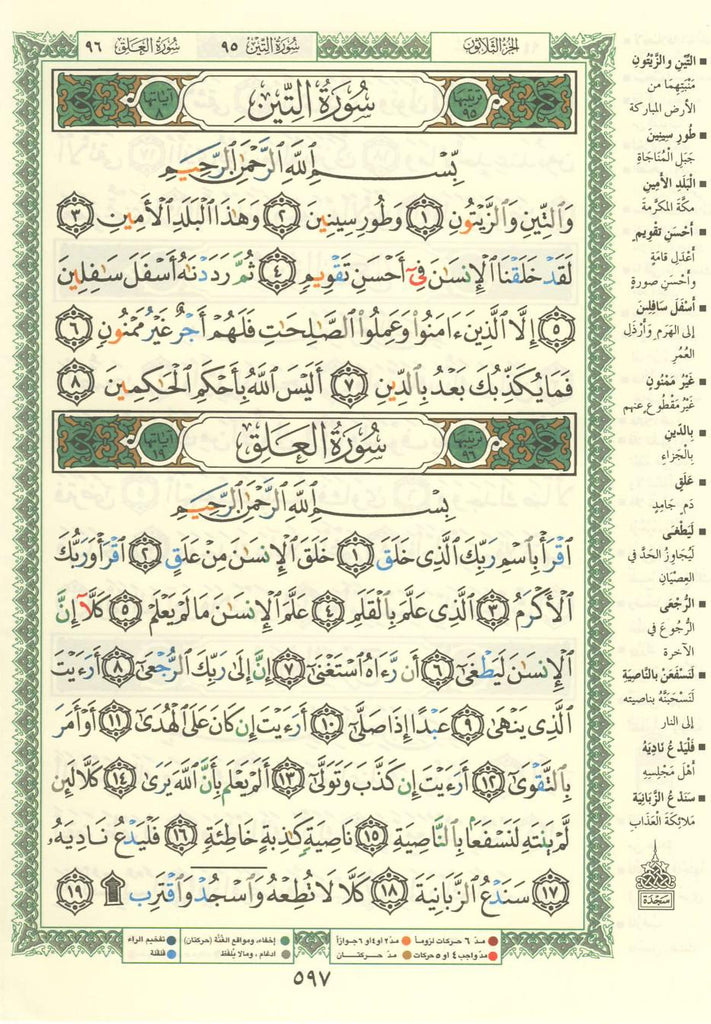 الجزء الثلاثون
سورة التين ٩٥
سورة العلق ٩٦
ترتيبها ٩٥
سُورَةُ التِّينِ
آياتها ٨
بِسْمِ ٱللَّهِ ٱلرَّحْمَٰنِ ٱلرَّحِيمِ
وَٱلتِّينِ وَٱلزَّيْتُونِ ١ وَطُورِ سِينِينَ ٢ وَهَٰذَا ٱلْبَلَدِ ٱلْأَمِينِ ٣
لَقَدْ خَلَقْنَا ٱلْإِنسَٰنَ فِىٓ أَحْسَنِ تَقْوِيمٍ ٤ ثُمَّ رَدَدْنَٰهُ أَسْفَلَ سَٰفِلِينَ
٥ إِلَّا ٱلَّذِينَ ءَامَنُوا۟ وَعَمِلُوا۟ ٱلصَّٰلِحَٰتِ فَلَهُمْ أَجْرٌ غَيْرُ مَمْنُونٍ ٦
فَمَا يُكَذِّبُكَ بَعْدُ بِٱلدِّينِ ٧ أَلَيْسَ ٱللَّهُ بِأَحْكَمِ ٱلْحَٰكِمِينَ ٨
ترتيبها ٩٦
سُورَةُ العَلَقِ
آياتها ١٩
بِسْمِ ٱللَّهِ ٱلرَّحْمَٰنِ ٱلرَّحِيمِ
ٱقْرَأْ بِٱسْمِ رَبِّكَ ٱلَّذِى خَلَقَ ١ خَلَقَ ٱلْإِنسَٰنَ مِنْ عَلَقٍ ٢ ٱقْرَأْ وَرَبُّكَ
ٱلْأَكْرَمُ ٣ ٱلَّذِى عَلَّمَ بِٱلْقَلَمِ ٤ عَلَّمَ ٱلْإِنسَٰنَ مَا لَمْ يَعْلَمْ ٥ كَلَّآ إِنَّ
ٱلْإِنسَٰنَ لَيَطْغَىٰٓ ٦ أَن رَّءَاهُ ٱسْتَغْنَىٰٓ ٧ إِنَّ إِلَىٰ رَبِّكَ ٱلرُّجْعَىٰٓ ٨ أَرَءَيْتَ
ٱلَّذِى يَنْهَىٰ ٩ عَبْدًا إِذَا صَلَّىٰٓ ١٠ أَرَءَيْتَ إِن كَانَ عَلَى ٱلْهُدَىٰٓ ١١ أَوْ أَمَرَ
بِٱلتَّقْوَىٰٓ ١٢ أَرَءَيْتَ إِن كَذَّبَ وَتَوَلَّىٰٓ ١٣ أَلَمْ يَعْلَم بِأَنَّ ٱللَّهَ يَرَىٰ ١٤ كَلَّا لَئِن
لَّمْ يَنتَهِ لَنَسْفَعًۢا بِٱلنَّاصِيَةِ ١٥ نَاصِيَةٍ كَٰذِبَةٍ خَاطِئَةٍ ١٦ فَلْيَدْعُ نَادِيَهُۥ
١٧ سَنَدْعُ ٱلزَّبَانِيَةَ ١٨ كَلَّا لَا تُطِعْهُ وَٱسْجُدْ وَٱقْتَرِب ۩ ١٩
■ التِّينِ والزَّيْتُونِ
مَنْبِتِهِما من
الأرض المباركة
■ طُورِ سِينِينَ
جَبَلِ المُناجَاةِ
■ البَلَدِ الأمِينِ
مكّة المكرّمة
■ أحْسَنِ تقْوِيمٍ
أعْدَلِ قامةٍ
وأحْسَنِ صورةٍ
■ أسْفَلَ سَافِلِينَ
إلى الهَرَمِ وأَرْذَلِ
العُمُرِ
■ غَيْرُ مَمْنُونٍ
غَيْرُ مَقْطُوعٍ عنهم
■ بالدِّينِ
بالْجَزاءِ
■ عَلَقٍ
دَمٍ جَامِدٍ
■ لَيَطْغَى
لَيُجَاوِزُ الحَدَّ في
العِصْيَانِ
■ الرُّجْعَى
الرُّجُوعَ في
الآخرة
■ لَنَسْفَعَنْ بالنَّاصِيَةِ
لَنَسْحَبَنَّهُ بناصيته
إلى النار
■ فَلْيَدْعُ نادِيَهُ
أهْلَ مَجْلِسِهِ
■ سَنَدْعُ الزَّبَانِيَةَ
مَلَائِكَةَ العَذَابِ
سَجْدَة
مدّ ٦ حركات لزوماً
مدّ ٢ أو ٤ أو ٦ جوازاً
إخفاء، ومواقع الغُنَّة (حركتان)
تفخيم الراء
مدّ واجب ٤ أو ٥ حركات
مدّ حركتان
ادغام، ومالا يُلفظ
قلقلة
٥٩٧